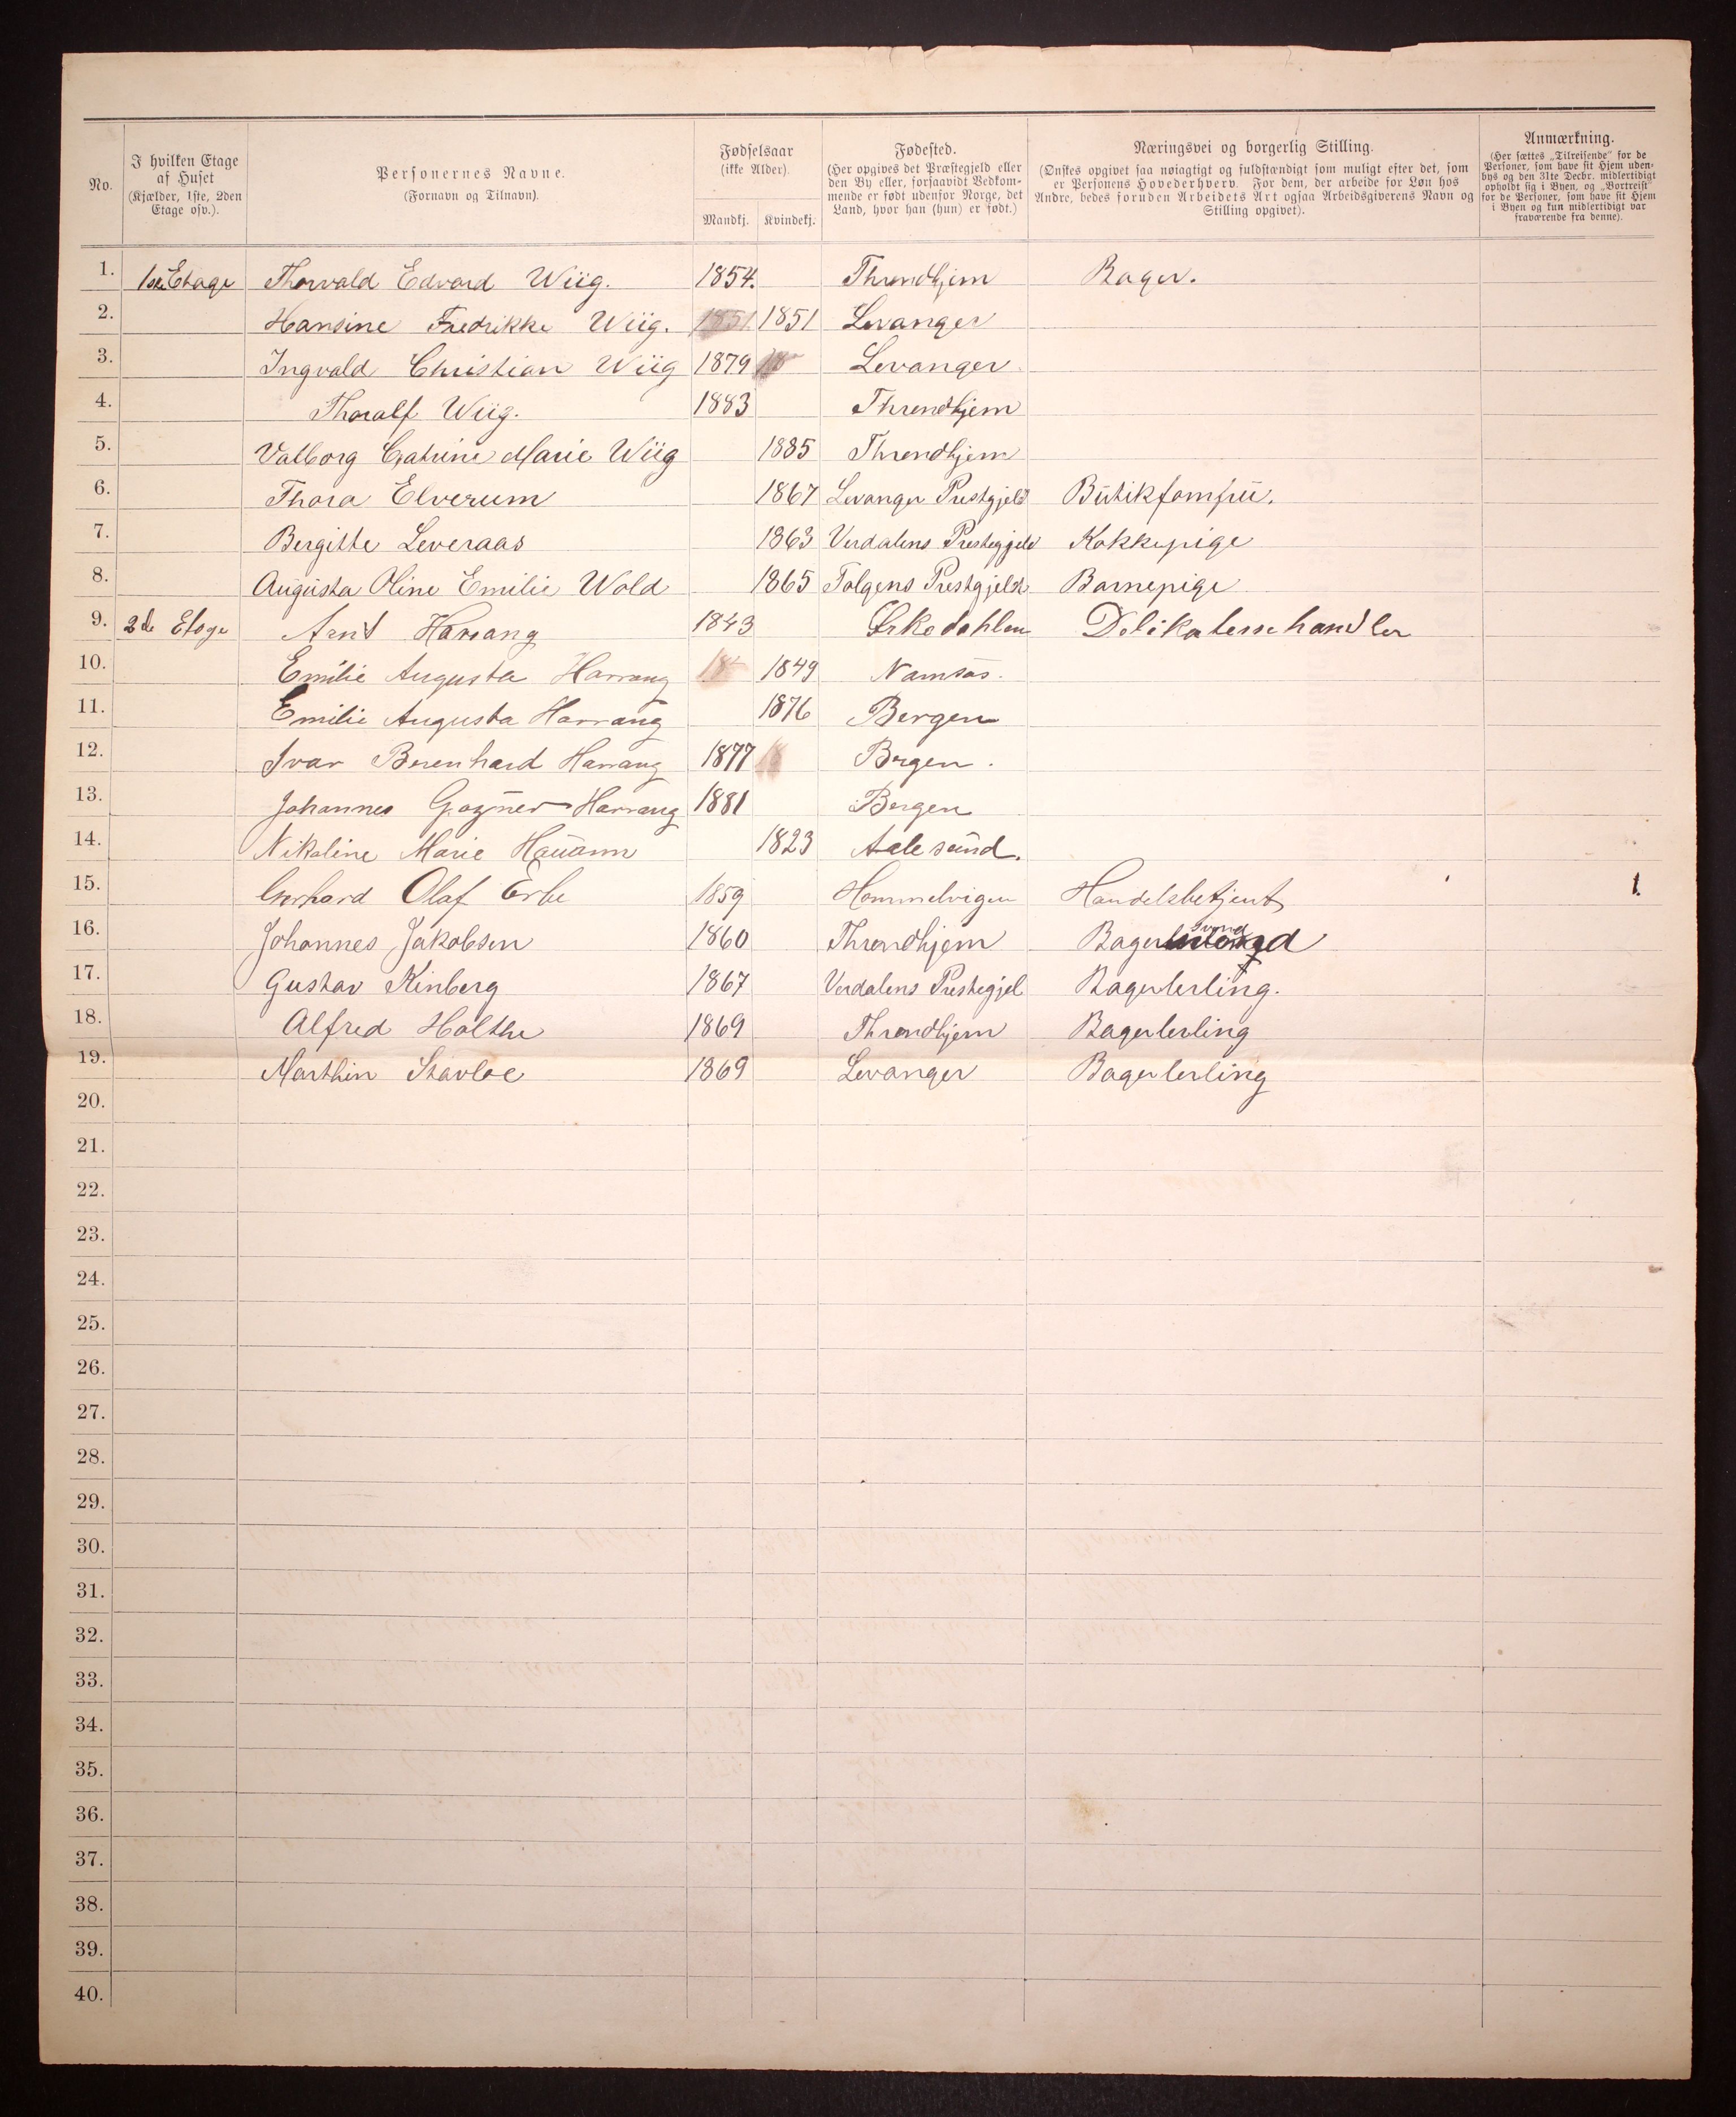 No.
I hvilken Etage af Huset (Kjælder, 1ste, 2den Etage osv.).
Personernes Navne. (Fornavn og Tilnavn).
Fødselsaar (ikke Alder).
Mandkj. Kvindekj.
Fødested. (Her opgives det Præstegjeld eller den By eller, forsaavidt Vedkommende er født udenfor Norge, det Land, hvor han (hun) er født.)
Næringsvei og borgerlig Stilling. (Ønskes opgivet saa nøiagtigt og fuldstændigt som muligt efter det, som er Personens Hovederhverv. For dem, der arbeide for Løn hos Andre, bedes foruden Arbeidets Art ogsaa Arbeidsgiverens Navn og Stilling opgivet).
Anmærkning. (Her sættes „Tilreisende" for de Personer, som have sit Hjem udenbys og den 31te Decbr. midlertidigt opholdt sig i Byen, og „Bortreist" for de Personer, som have sit Hjem i Byen og kun midlertidigt var fraværende fra denne).
1. 1ste Etage Thorvald Edvard Wiig. 1854. Throndhjem Bager.
2. Hansine Fredrikke Wiig. 1851 1851 Levanger
3. Ingvald Christian Wiig 1879 18 Levanger
4. Thoralf Wiig. 1883 Throndhjem
5. Valborg Catrine Marie Wiig 1885 Throndhjem
6. Thora Elverum 1867 Levanger Prestgjeld Butikjomfru.
7. Bergitte Leveraas 1863 Verdalens Prestegjeld Kokkepige
8. Augusta Oline Emilie Wold 1865 Tolgens Prestgjeld Barnepige
9. 2de Etage Arnt Harrang 1843 Orkedahlen Delikatessehandler
10. Emilie Augusta Harrang 18 1849 Namsos.
11. Emilie Augusta Harrang 1876 Bergen
12. Ivar Berenhard Harrang 1877 18 Bergen.
13. Johannes Harrang 1881 Bergen
14. Nikoline Marie 1823 Aalesund.
15. Gerhard Olaf Erbe 1859 Hommelvigen Handelsbetjent 1.
16. Johannes Jakobsen 1860 Throndhjem Bager svend
17. Gustav Kinberg 1867 Verdalens Prestegjel Bagerlerling.
18. Alfred Holthe 1869 Throndhjem Bagerlerling
19. Marthin Stavloe 1869 Levanger Bagerlerling
20.
21.
22.
23.
24.
25.
26.
27.
28.
29.
30.
31.
32.
33.
34.
35.
36.
37.
38.
39.
40.